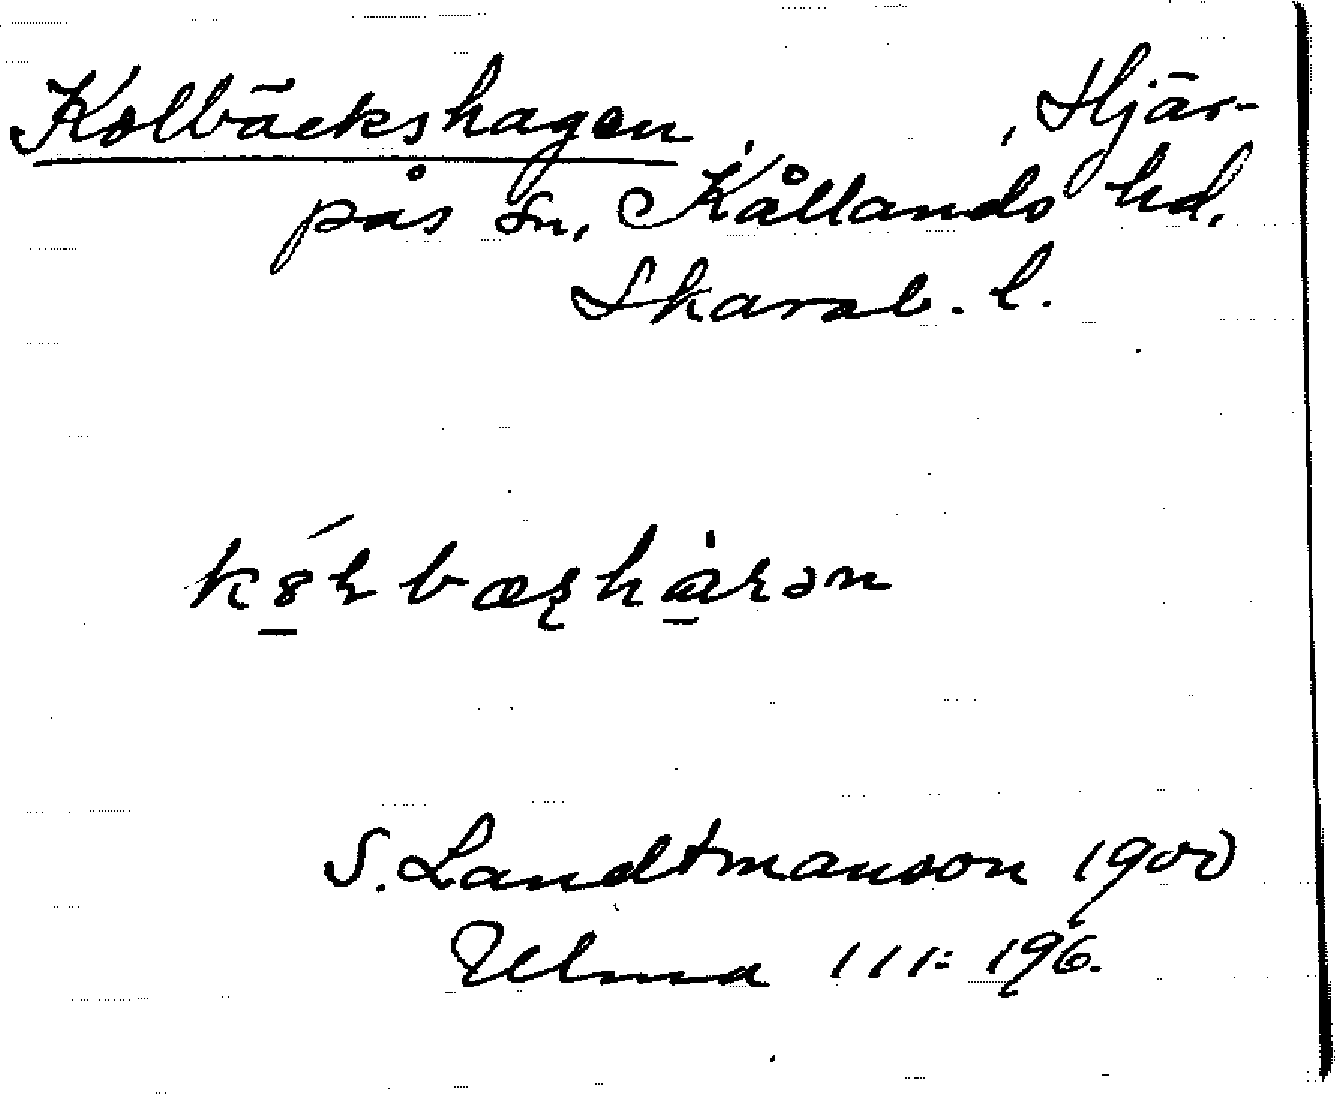 Kolbäckshagen, Hjär-
pås sn, Kållands hd.
Skarab. l.
S. Landtmanson 1900
Ulma 111:196.